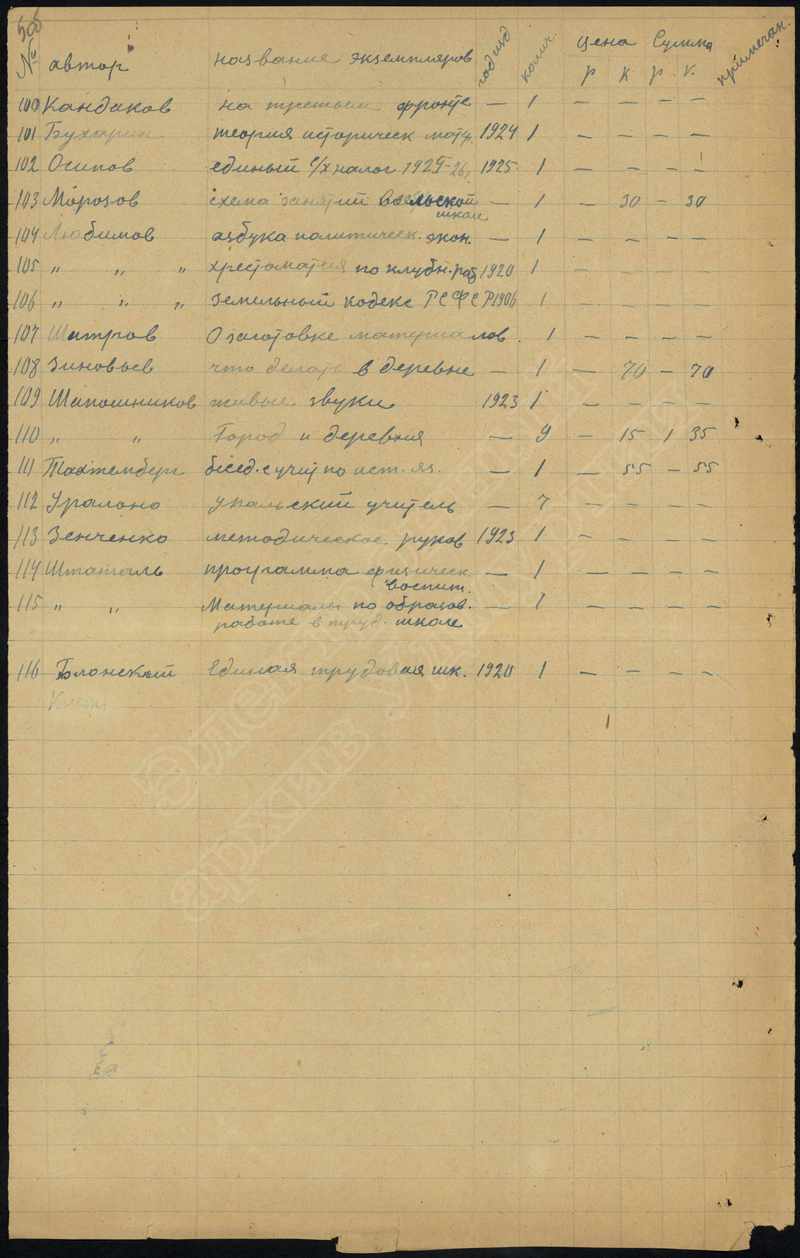 № автор название экземпляров год изд колич. цена Сумма примечан.
р к р к.
100 Кандаков на третьем фронте — 1 — — — —
101 Бухарин теория историческ мат. 1924 1 — — — —
102 Осипов единый с/х налог 1925-26, 1925 1 — — — —
103 Морозов схема занятий в сельской — 1 — 30 — 30
школе
104 Любимов азбука политическ. экон. — 1 — — — —
105 " " " хрестоматия по клубн. раб 1920 1 — — — —
106 " " " земельный кодекс РСФСР 1906 1 — — — —
107 О заготовке материалов. 1 — — — —
108 Зиновьев что делать в деревне — 1 — 70 — 70
109 Шапошников живые звуки 1923 1 — — — —
110 " " Город и деревня — 9 — 15 1 35
111 Тахтемберг бесед. с учит по ист. — 1 — 55 — 55
112 уральский учитель — 7 — — — —
113 Зенченко методическое руков 1923 1 — — — —
114 программа физическ — 1 — — — —
воспит.
115 " " Материалы по образов. — 1 — — — —
работе в труд. школе
116 Блонский Единая трудовая шк. 1920 1 — — — —